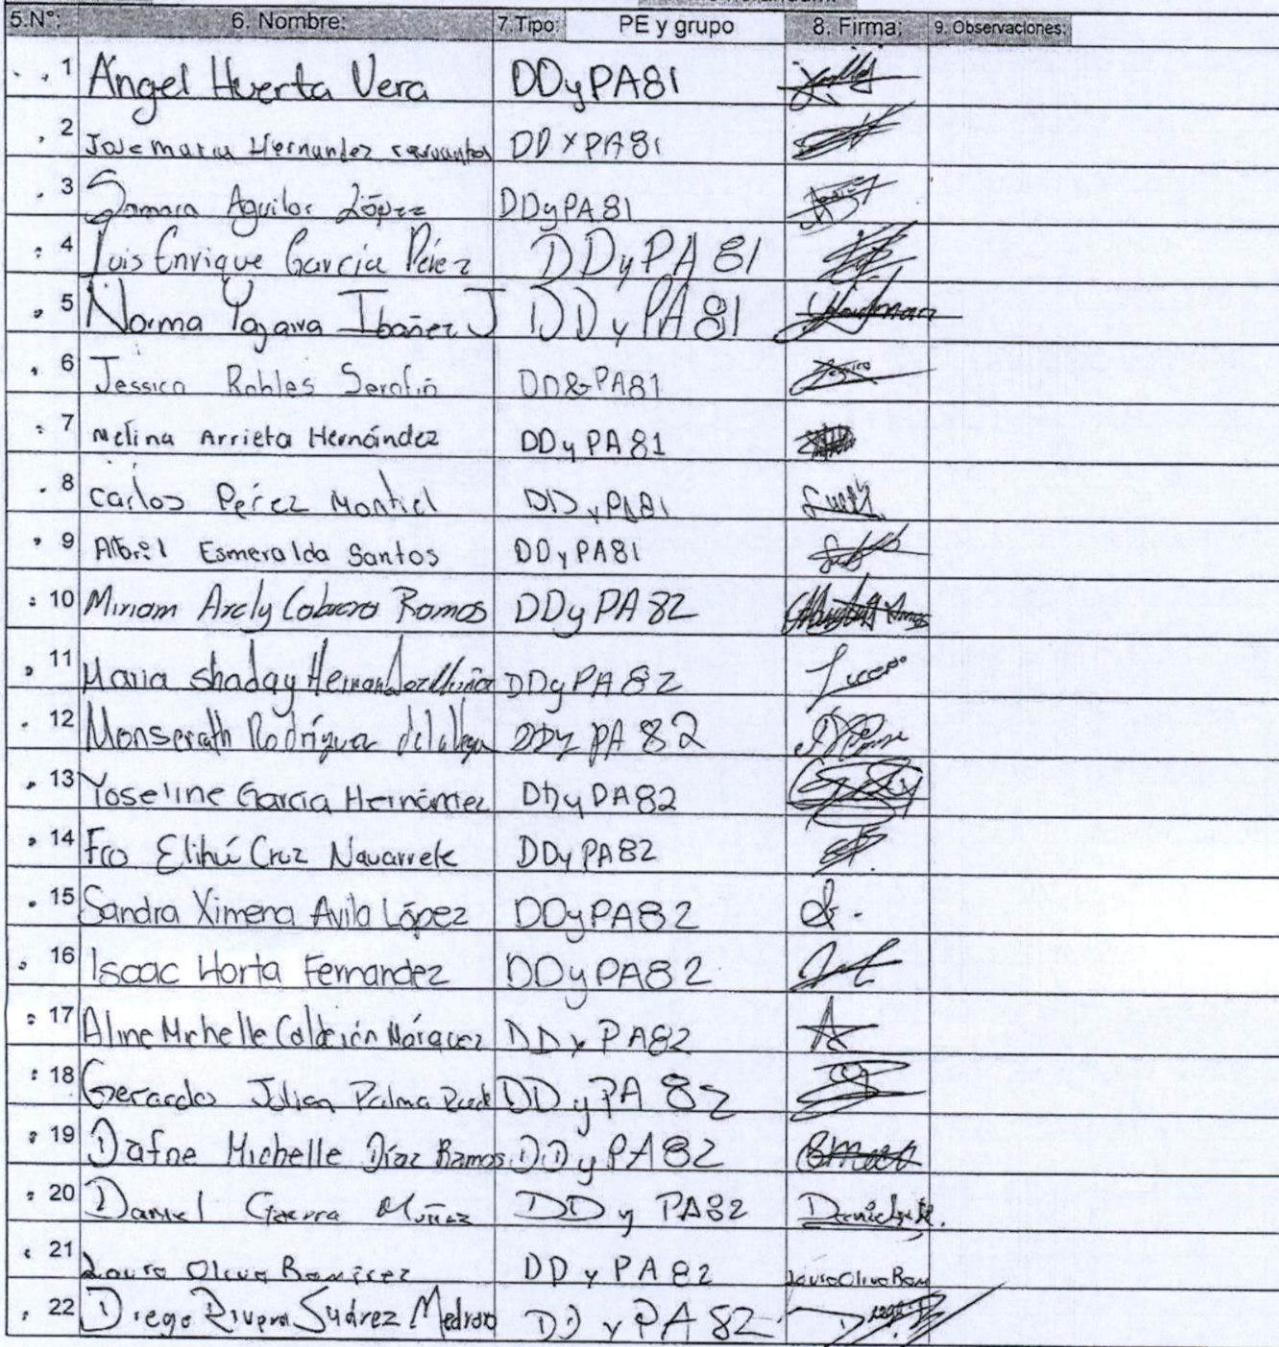 5.N°: 6. Nombre: 7.Tipo: PE y grupo 8. Firma: 9. Observaciones:
1 Angel Huerta Vera DDyPA81
2 Jose maria Hernandez cervantes DD y PA81
3 Samara Aguilar López DDyPA81
4 Luis Enrique García Pérez DDyPA 81
5 Norma Yazawa Ibañez J DDyPA81
6 Jessica Robles Serafin DD&PA81
7 Melina Arrieta Hernández DDyPA81
8 Carlos Peréz Montiel DDyPA81
9 Abril Esmeralda Santos DDyPA81
10 Miriam Arely Cabrera Ramos DDyPA 82
11 Maria shaday Hernandez DDyPA82
12 Monserath Rodríguez de la Vega DDy PA 82
13 Yoseline García Hernández DDyPA82
14 Fco Elihú Cruz Navarrete DDyPA82
15 Sandra Ximena Avila López DDyPA82
16 Isaac Horta Fernandez DDyPA82
17 Aline Michelle Calderón Márquez DDyPA82
18 Gerardo Julian Palma DDyPA 82
19 Dafne Michelle Díaz Ramos DDyPA82
20 Daniel Guerra Muñoz DD y PA82
21 Lauro Oliva Ramírez DD y PA 82 Lauro Oliva Ram
22 Diego Rivera Suárez Medrano DD y PA 82